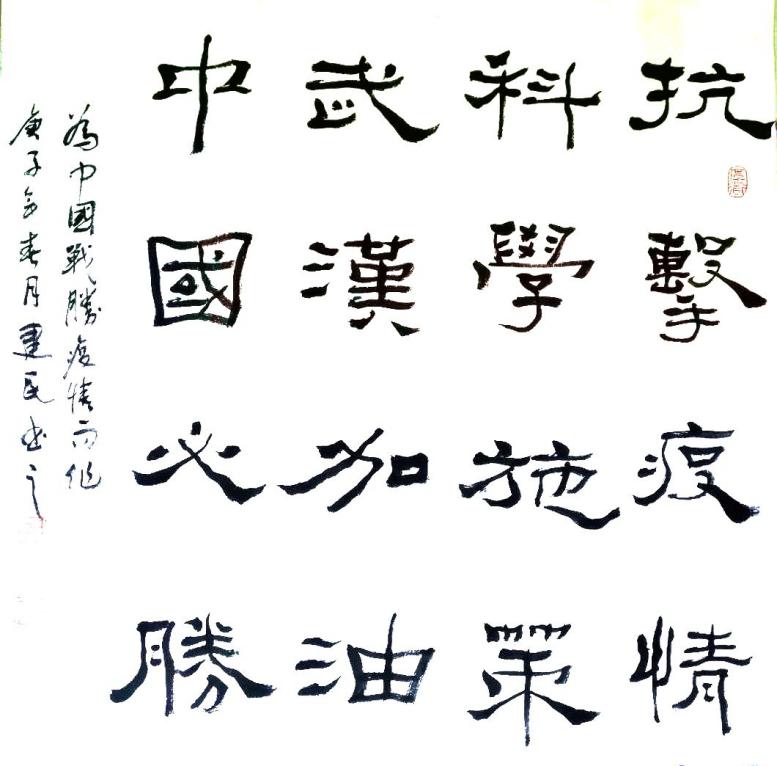 抗擊疫情
科學施策
武漢加油
中國必勝
為中國戰勝疫情而作
庚子年春月建民書之